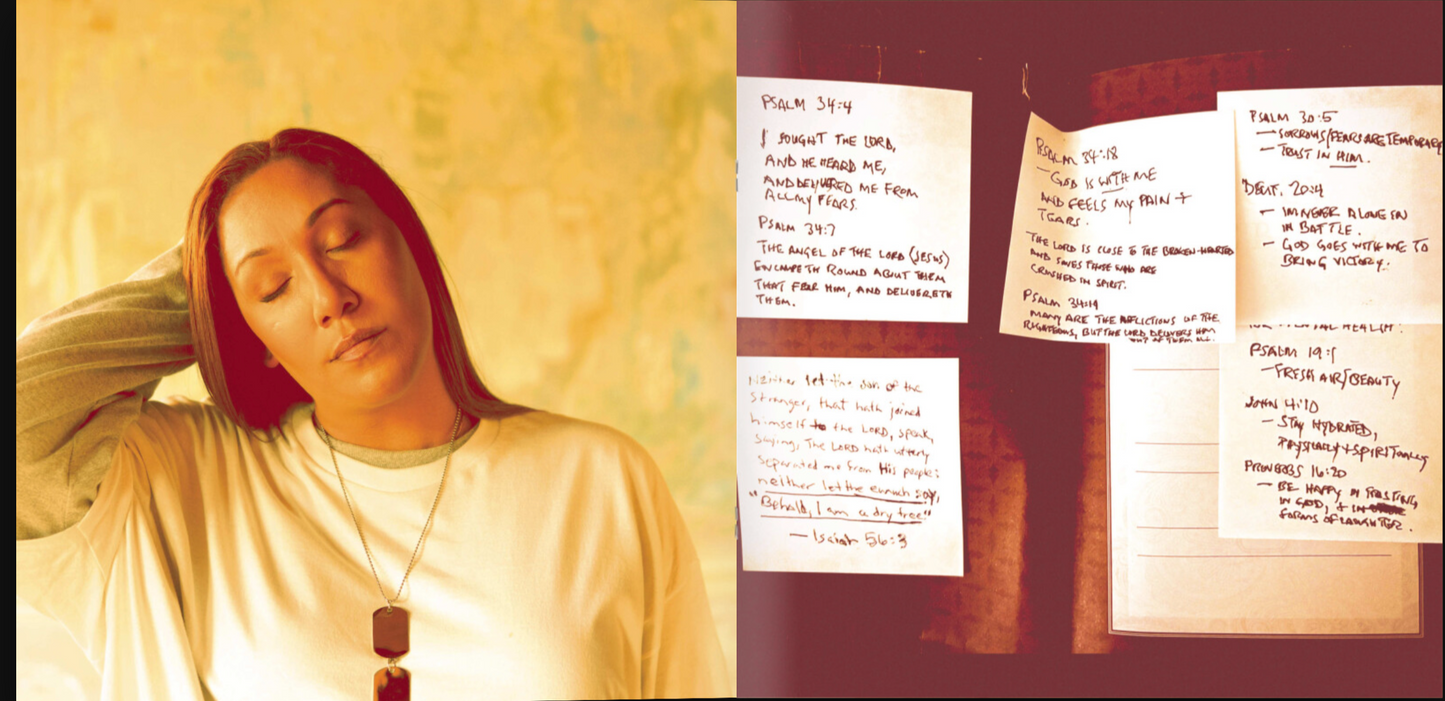 PSALM 34:4
I SOUGHT THE LORD,
AND HE HEARD ME,
AND DELIVERED ME FROM
ALL MY FEARS.
PSALM 34:7
THE ANGEL OF THE LORD (JESUS)
ENCAMPETH ROUND ABOUT THEM
THAT FEAR HIM, AND DELIVERETH
THEM.
Neither let the son of the
stranger, that hath joined
himself to the LORD, speak,
saying, The LORD hath utterly
separated me from His people:
neither let the eunuch say,
"Behold, I am a dry tree"
— Isaiah 56:3
PSALM 34:18
— GOD IS WITH ME
AND FEELS MY PAIN +
TEARS.
THE LORD IS CLOSE TO THE BROKEN-HEARTED
AND SAVES THOSE WHO ARE
CRUSHED IN SPIRIT.
PSALM 34:19
MANY ARE THE AFFLICTIONS OF THE
RIGHTEOUS, BUT THE LORD DELIVERS HIM
OUT OF THEM ALL.
PSALM 30:5
— SORROWS/FEARS ARE TEMPORARY
— TRUST IN HIM.
DEUT. 20:4
— IM NEVER ALONE IN
IN BATTLE.
— GOD GOES WITH ME TO
BRING VICTORY.
MENTAL HEALTH:
PSALM 19:1
— FRESH AIR/BEAUTY
JOHN 4:10
— STAY HYDRATED,
PHYSICALLY + SPIRITUALLY
PROVERBS 16:20
— BE HAPPY IN TRUSTING,
IN GOD, + IN
FORMS OF LAUGHTER.